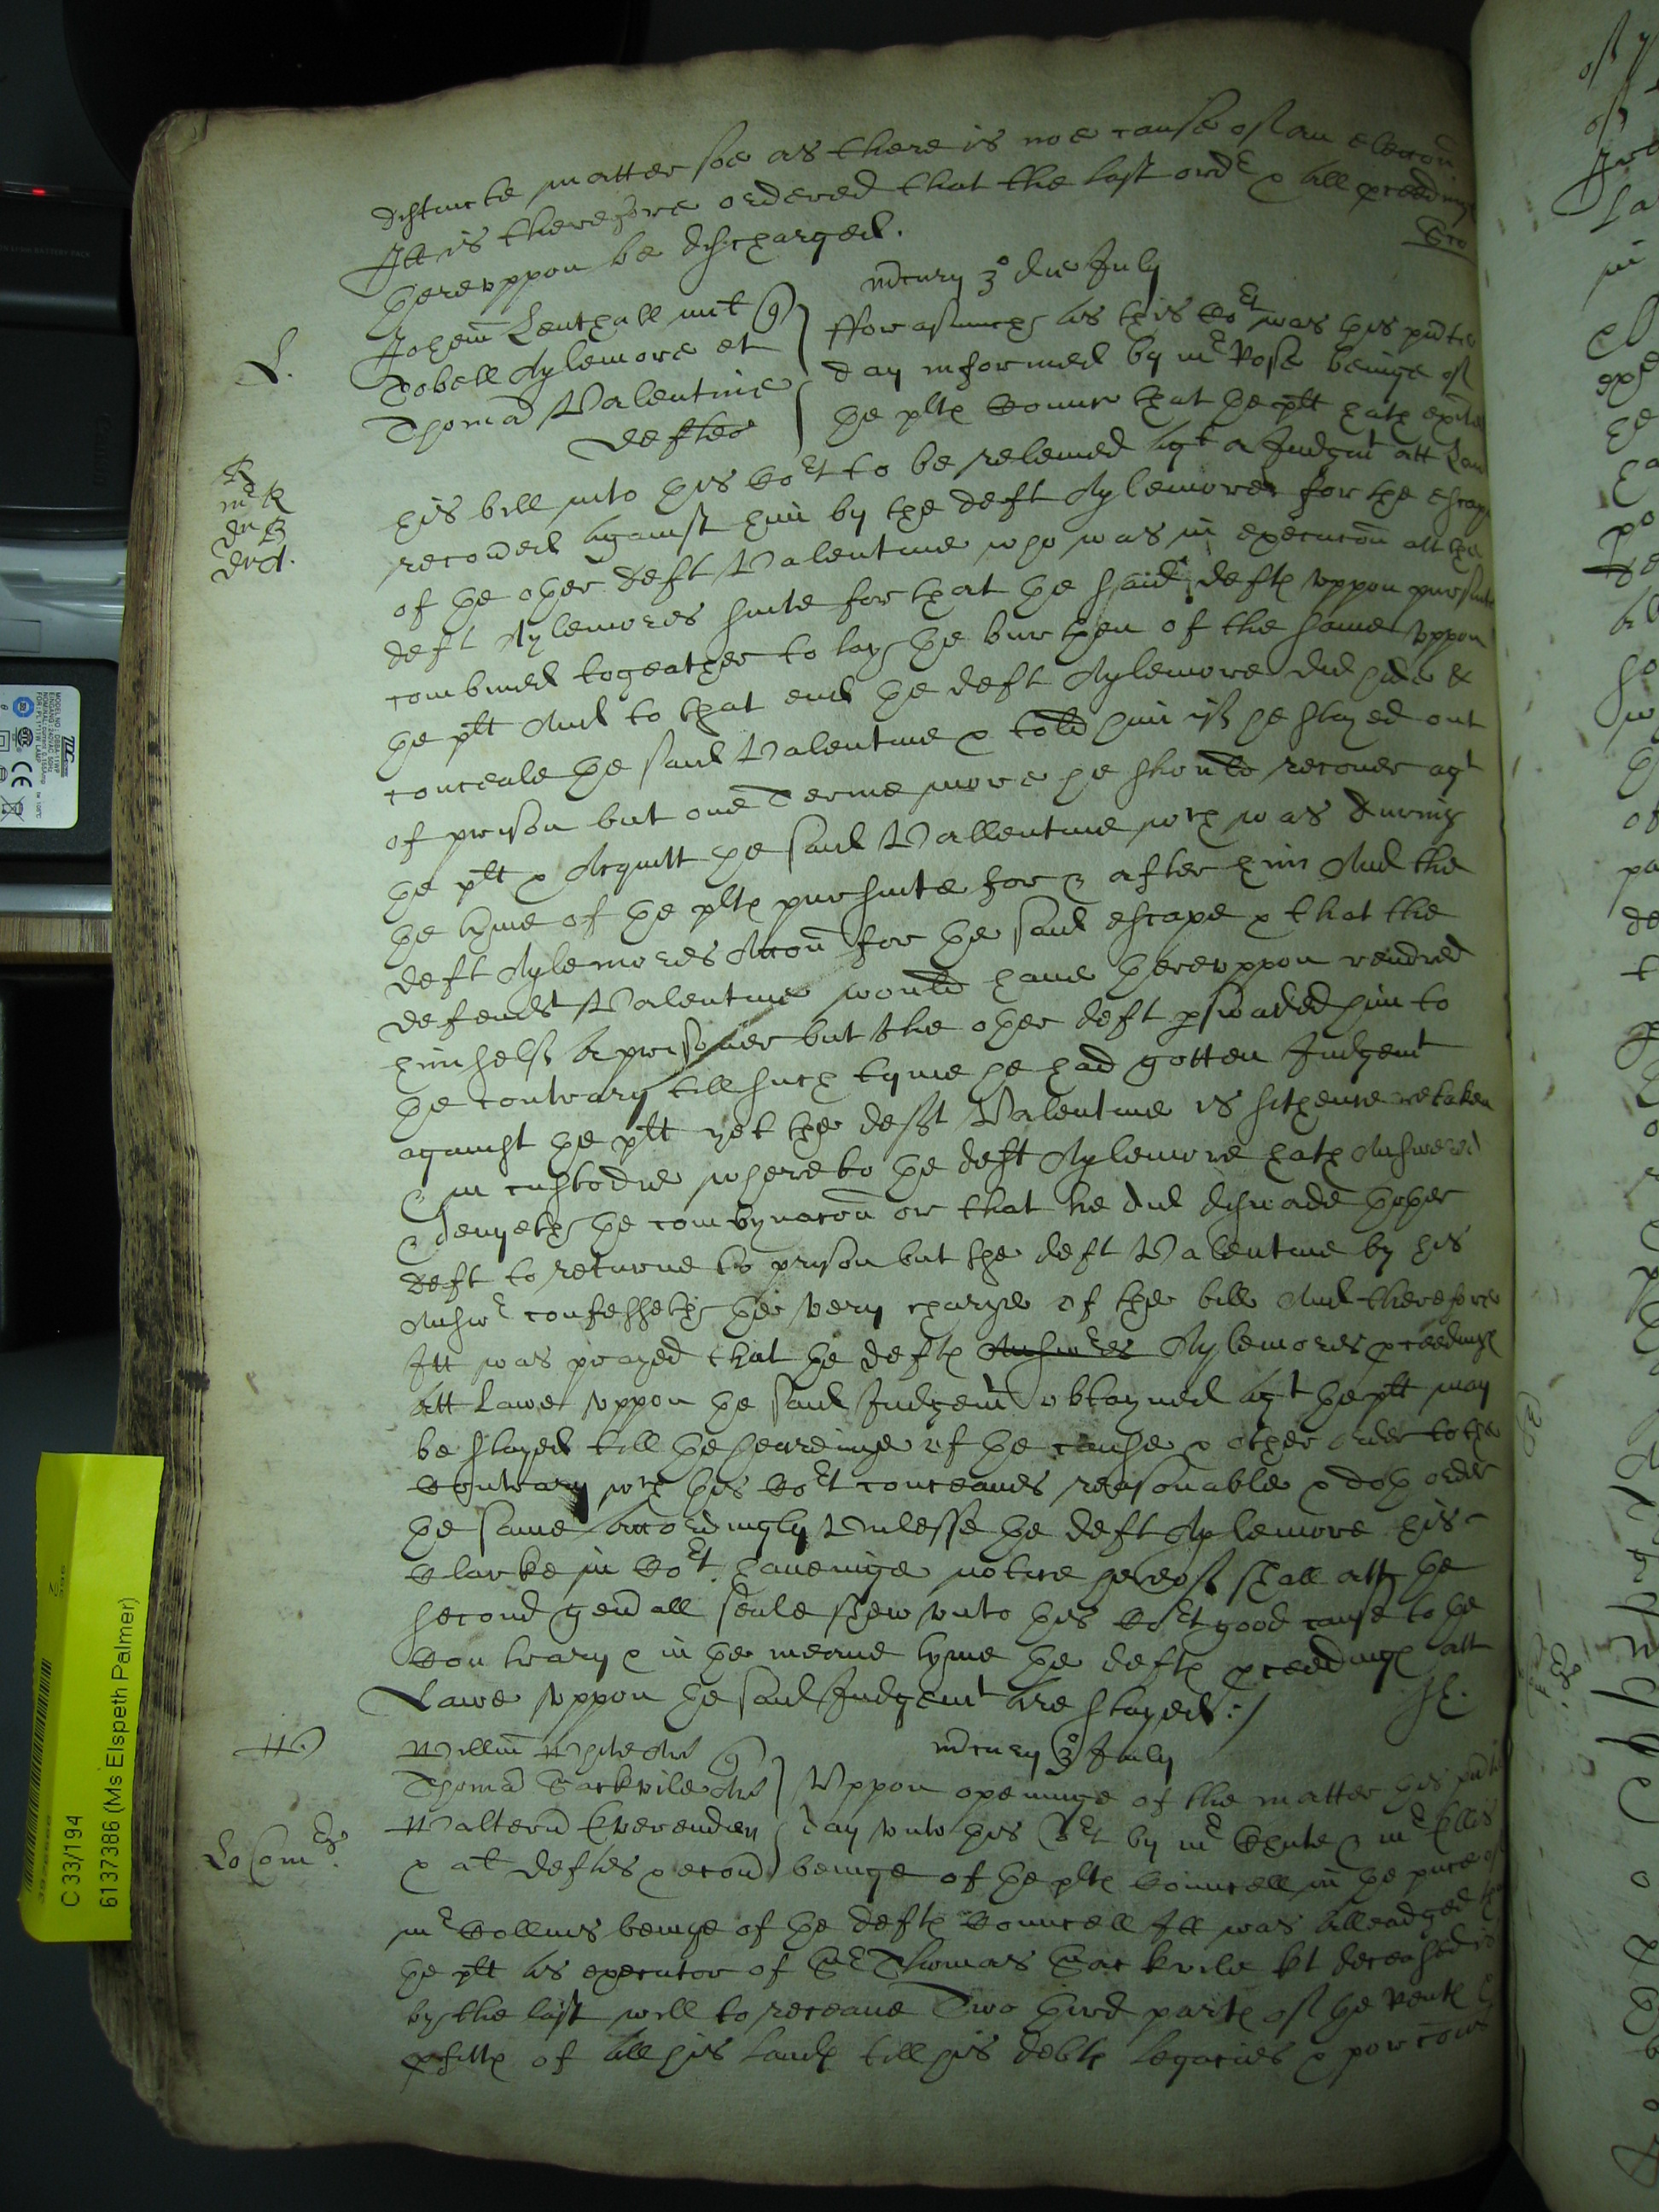 distincte matter soe as there is noe cause of an eleccon
Itt is therefore ordered that the last ordr & all pceedings
thereuppon be discharged.
mcury 3o die July
L.
Johem Lenthall mit q
Tobell Aylemore et
Thomas Valentine
deftes
fforasmuch as this Cort was this pnte
day informed by mr Rose beinge of
the plts Councell that the plt hath exited
his bill into this Cort to be releived agt a Judgmt att Law
recoved against him by the deft Aylemore for the escape
of the other deft Valentine who was in execucon att the
deft Aylemores suite for that the said defts uppon pursuite
combined togeather to lay the burthen of the same uppon
the plt And to that end the deft Aylemore did hide &
conceale the said Valentine & told him if he stayed out
of prison but one Terme more he should recover agt
the plt & Acquitt the said Vallentine wch was during
the tyme of the plts pursuite for & after him And the
deft Aylemores Accon for the said escape & that the
defendt Valentine would have thereuppon rendred
himself a prisoner but the other deft pswaded him to
the contrary till such tyme he had gotten Judgemt
against the plt yet the deft Valentine is sithence retaken
& in custodie whereto the deft Aylemore hath Answered
& denyeth the combynacon or that he did diswade thother
deft to returne to prison but the deft Valentine by his
Answr confesseth the very charge of the bill And therefore
Itt was prayed that the defts Answres Aylemores pceedings
att Lawe uppon the said Judgemt obtayned agt the plt may
be stayed till the heareinge of the cause & other order to the
Contrary wch this Cort conceaves reasonable & doth order
the same accordingly Unlesse the deft Aylemore his
Clarke in Cort haveinge notice hereof shall att the
second genall seale shew unto this Cort good cause to the
Contrary & in the meane tyme the defts pceedings att
Lawe uppon the said Judgemt are stayed :/
mcury 3o July
Willm White Ar
Thomas Sackvile Ar
Walterus Everenden
& at deftes
Uppon openinge of the matter this pnte
day unto this Cort by mr Chute & mr Ellis
beinge of the plts Councell in the pnce of
mr Collins beinge of the defts Councell Itt was alleadged
the plt as executor of Sr Thomas Sackvile kt deceased is
by the last will to receave Two third parts of the rents &
pfitts of all his lands till his debts legacies & porcons
C 33/194
6137386 (Ms Elspeth Palmer)